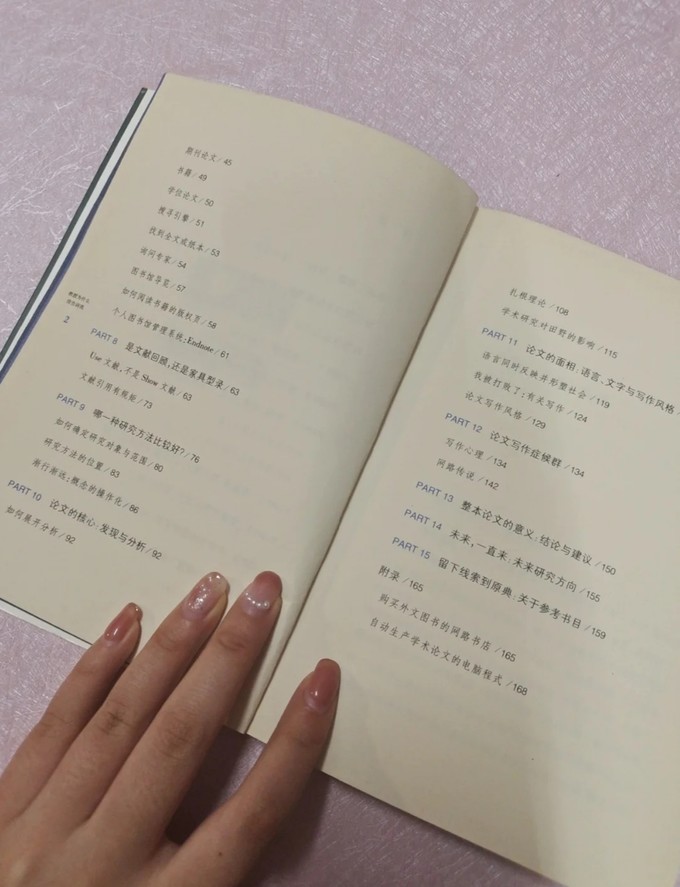 期刊论文/45
书籍/49
学位论文/50
搜寻引擎/51
找到全文或纸本/53
询问专家/54
图书馆导览/57
如何阅读书籍的版权页/58
个人图书馆管理系统:Endnote/61
PART 8 是文献回顾,还是家具型录/63
Use 文献,不是 Show 文献/63
文献引用有规矩/73
PART 9 哪一种研究方法比较好?/76
如何确定研究对象与范围/80
研究方法的位置/83
渐行渐远:概念的操作化/86
PART 10 论文的核心:发现与分析/92
如何展开分析/92
2
扎根理论/108
学术研究对田野的影响/115
PART 11 论文的面相:语言、文字与写作风格/
语言同时反映并形塑社会/119
我被打败了:有关写作/124
论文写作风格/129
PART 12 论文写作症候群/134
写作心理/134
网路传说/142
PART 13 整本论文的意义:结论与建议/150
PART 14 未来,一直来:未来研究方向/155
PART 15 留下线索到原典:关于参考书目/159
附录/165
购买外文图书的网路书店/165
自动生产学术论文的电脑程式/168